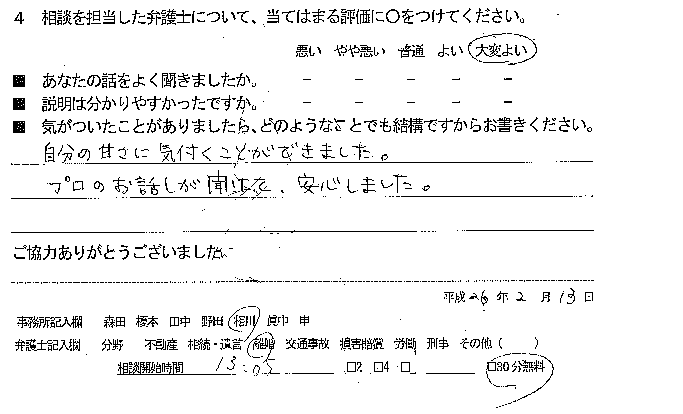 4 相談を担当した弁護士について、当てはまる評価に○をつけてください。
悪い やや悪い 普通 よい 大変よい
■ あなたの話をよく聞きましたか。 － － － － －
■ 説明は分かりやすかったですか。 － － － － －
■ 気がついたことがありましたら、どのようなことでも結構ですからお書きください。
自分の甘さに気付くことができました。
プロのお話しが聞けて、安心しました。
ご協力ありがとうございました
平成26年2月13日
事務所記入欄 森田 榎本 田中 野田 相川 眞中 申
弁護士記入欄 分野 不動産 相続・遺言 離婚 交通事故 損害賠償 労働 刑事 その他（ ）
相談開始時間 13:05 □2 □4 □ □30分無料